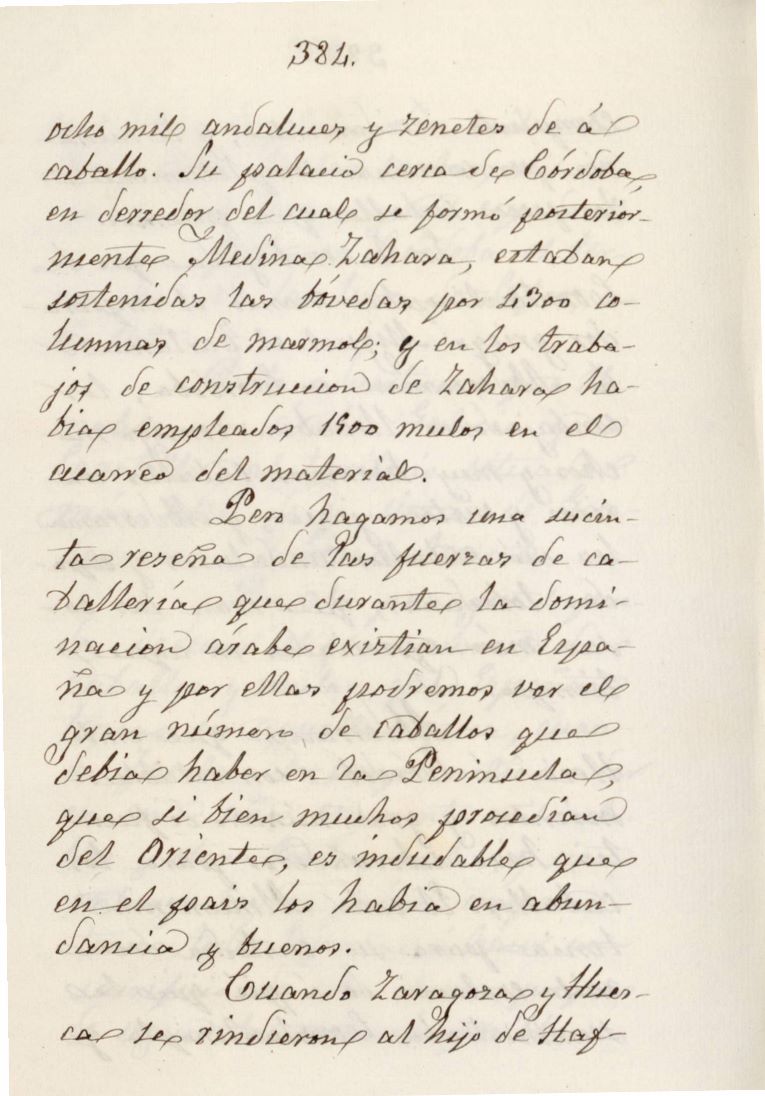 384.
ocho mil andaluces y zenetes de á
caballo. Su palacio cerca de Córdoba,
en derredor del cual se formó posterior-
mente Medina Zahara, estaban
sostenidas las bóvedas por 4300 co-
lumnas de marmol; y en los traba-
jos de construccion de Zahara ha-
bia empleados 1500 mulos en el
acarreo del material.
Pero hagamos una sucin-
ta reseña de las fuerzas de ca-
ballería que durante la domi-
nacion árabe existian en Espa-
ña y por ellas podremos ver el
gran número de caballos que
debia haber en la Peninsula,
que si bien muchos procedian
del Oriente, es indudable que
en el pais los habia en abun-
dancia y buenos.
Cuando Zaragoza y Hues-
ca se rindieron al hijo de Haf-